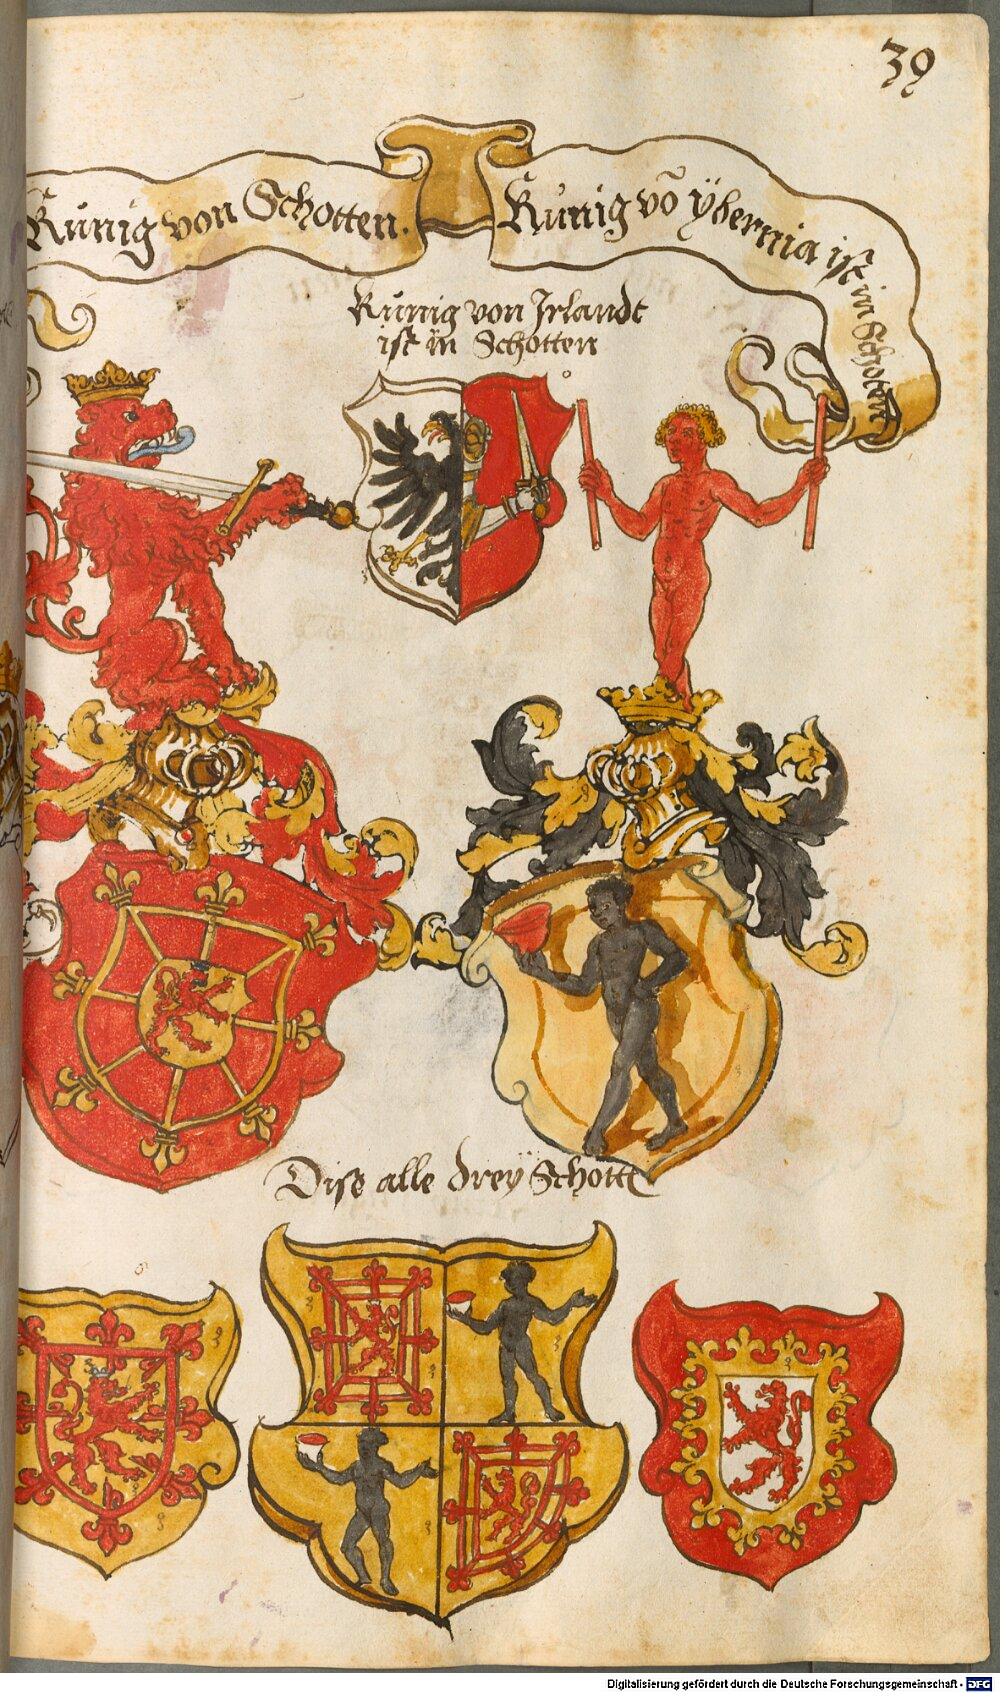 39
Kùnig von Schotten.
Kùnig võ ÿbernia ist in Schotten
Kùnig von Irlandt
ist in Schotten
Dise alle dreÿ Schott
Digitalisierung gefördert durch die Deutsche Forschungsgemeinschaft - DFG